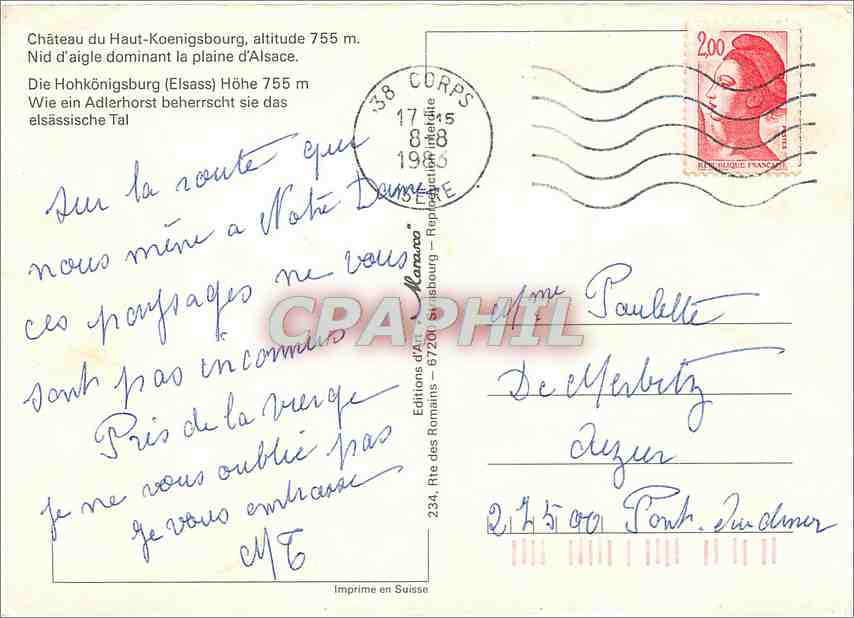 Château du Haut-Koenigsbourg, altitude 755 m.
Nid d'aigle dominant la plaine d'Alsace.
Die Hohkönigsburg (Elsass) Höhe 755 m
Wie ein Adlerhorst beherrscht sie das
elsässische Tal
Sur la route qui
nous mène a Notre Dame
ces paysages ne vous
sont pas inconnus
Près de la vierge
je ne vous oublie pas
Je vous embrasse
MT
Imprime en Suisse
Editions d'Art "Marasco"
234, Rte des Romains — 67200 Strasbourg — Reproduction interdite
38 CORPS
17H15
8-8
1983
ISERE
2,00
POSTES
REPUBLIQUE FRANÇAISE
Mme Paulette
De Merbitz
27500 Pont. Audemer
CPAPHIL